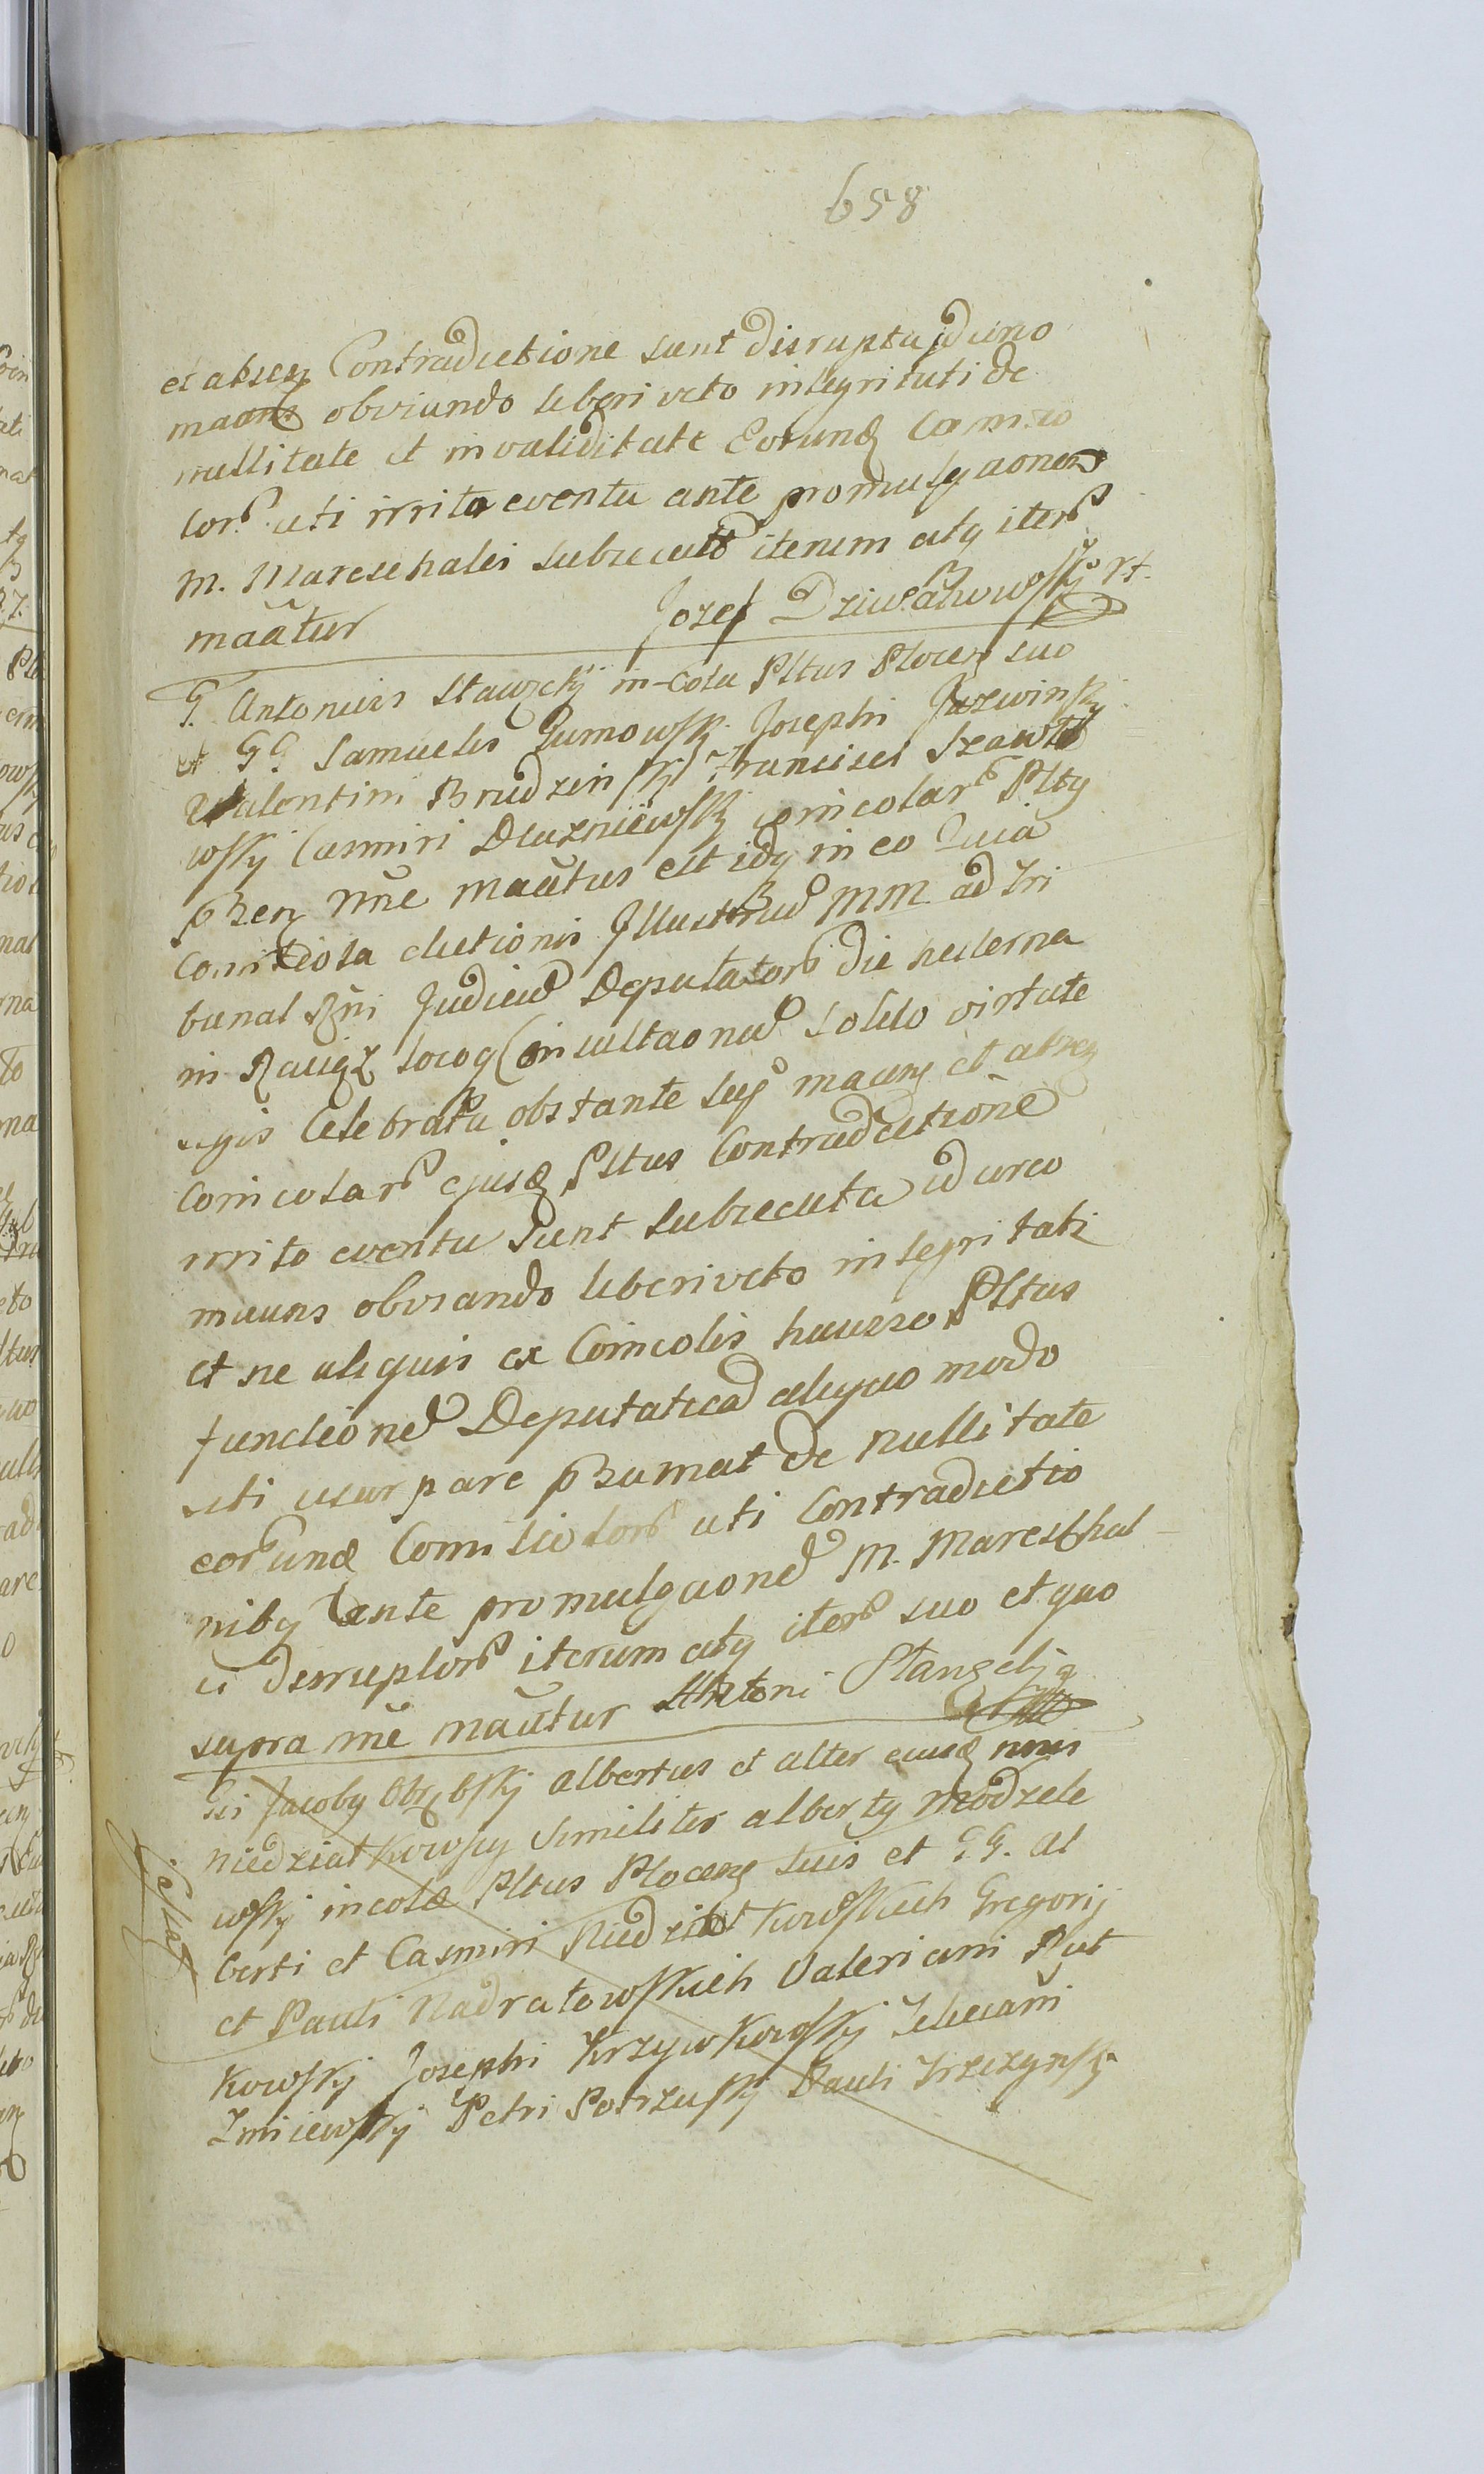 658
et absen Contradictione sunt disrupta id circo
maans obviando liberi veto integritati de
nullitate et invaliditate Eorund Comitio
lor uti irrito eventu ante promulgaonem
M. Mareschalei subsecut iterum atq iter
maatur Jozef
G. Antonius in-Cola Pltus Plocen suo
et GG Samuelis Gumowskj Josephi
Valentini Brudzinskj Francisci
wskj Casmiri Dluzniewskj comcolar Pltq
pnn nne maatus est idq in eo Quia
Comitiola electionis Illustriu MM. ad Tri
bunal Rni Judiciu Deputator die hesterna
in Raciąz locoq Consultaonu solito virtute
legis Celebrata obstante sup maans et absen
Comcolar ejusd Pltus Contradictione
irrito eventu sunt subsecuta id circo
maans obviando liberi veto integritati
et ne aliquis ex Comcolis huusce Pltus
functione Deputatica aliquo modo
sibi usurpare psumat de nullitate
eorund Comitiolor uti Contradictio
nibq ante promulgaone M. Mareschal
ci disruptor iterum atq iter suo et quo
supra nne maatur Antoni
Gsi Jacobq Obrębskj albertus et alter eiusd nnis
niedziałkowscy similiter albertq modzele
wskj incolæ Pltus Plocen suis et GG. Al
berti et Casmiri Niedziałkowskich Gregorij
et Pauli Nadratowskich Valeriani Rut
kowskj Josephi Krzywkowskj
Zmiewskj Petri Potrzuskj Pauli